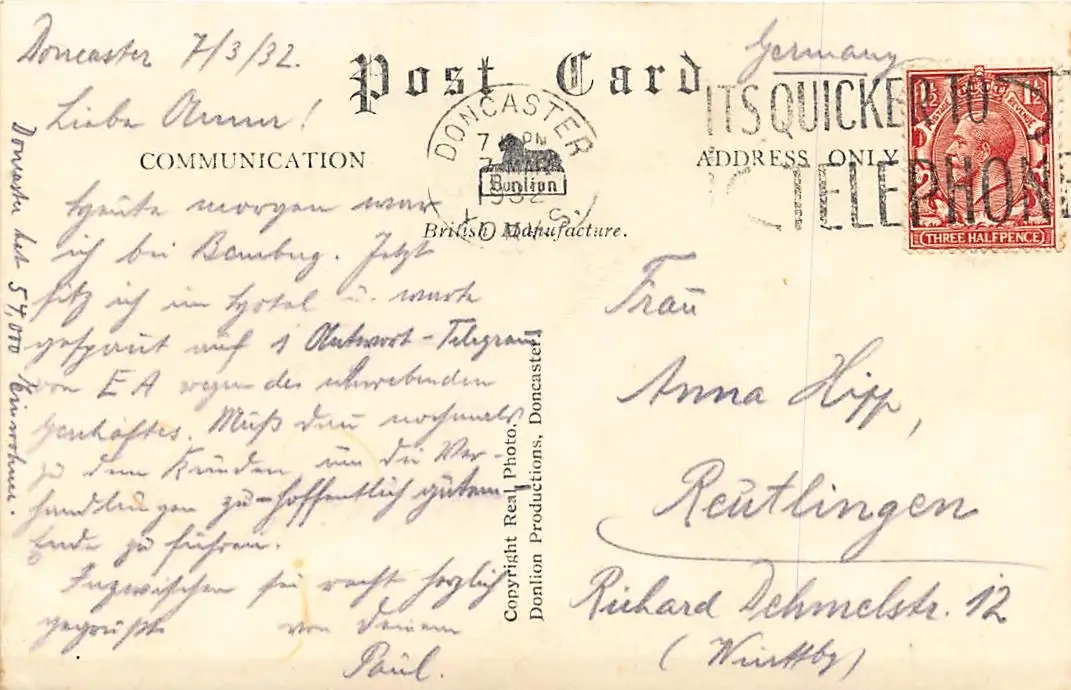 Doncaster 7/3/32.
Post Card
Germany
Liebe Anna!
COMMUNICATION
ADDRESS ONLY
DONCASTER
7 PM
7 MAR
1932
Donlion
British Manufacture.
ITS QUICKER TO
TELEPHONE
1½ 1½
POSTAGE REVENUE
THREE HALFPENCE
Heute morgen war
ich bei Bamberg. Jetzt
sitz ich im Hotel u. warte
gespannt auf 1 Antwort-Telegramm
von EA wegen des schwebenden
Geschäftes. Muß dann nochmals
zu dem Kunden um die Ver-
handlungen zu - hoffentlich gutem -
Ende zu führen.
Inzwischen sei recht herzlich
gegrüßt von Deinem
Paul.
Doncaster hat 54,000 Einwohner.
Copyright Real Photo.
Donlion Productions, Doncaster.
Frau
Anna Hipp,
Reutlingen
Richard Dehmelstr. 12
(Württbg)